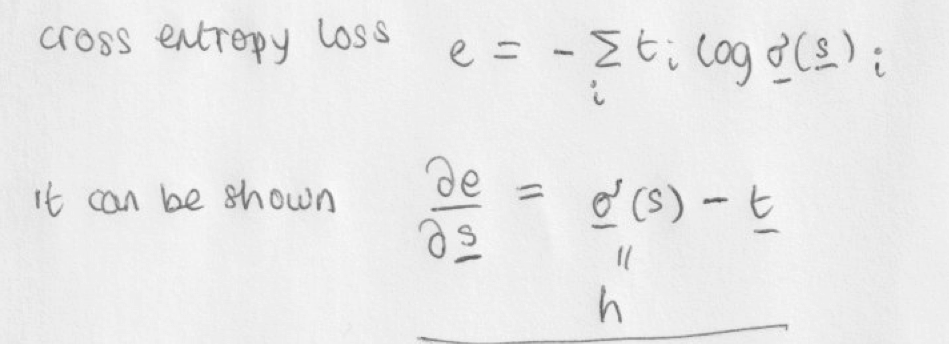 cross entropy loss e = - Σ_i t_i log σ(s)_i
it can be shown ∂e/∂s = σ(s) - t
=
h